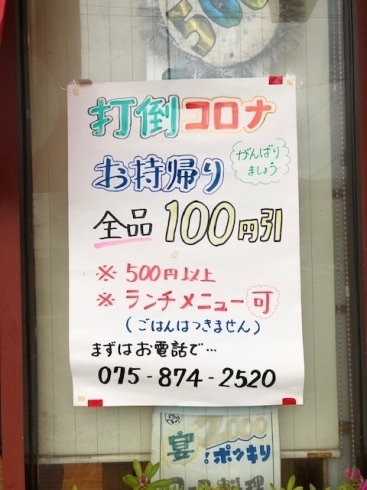 打倒コロナ
がんばり
ましょう
お持帰り
全品100円引
※500円以上
※ランチメニュー可
(ごはんはつきません)
まずはお電話で…
075-874-2520
宴
!ポッキリ